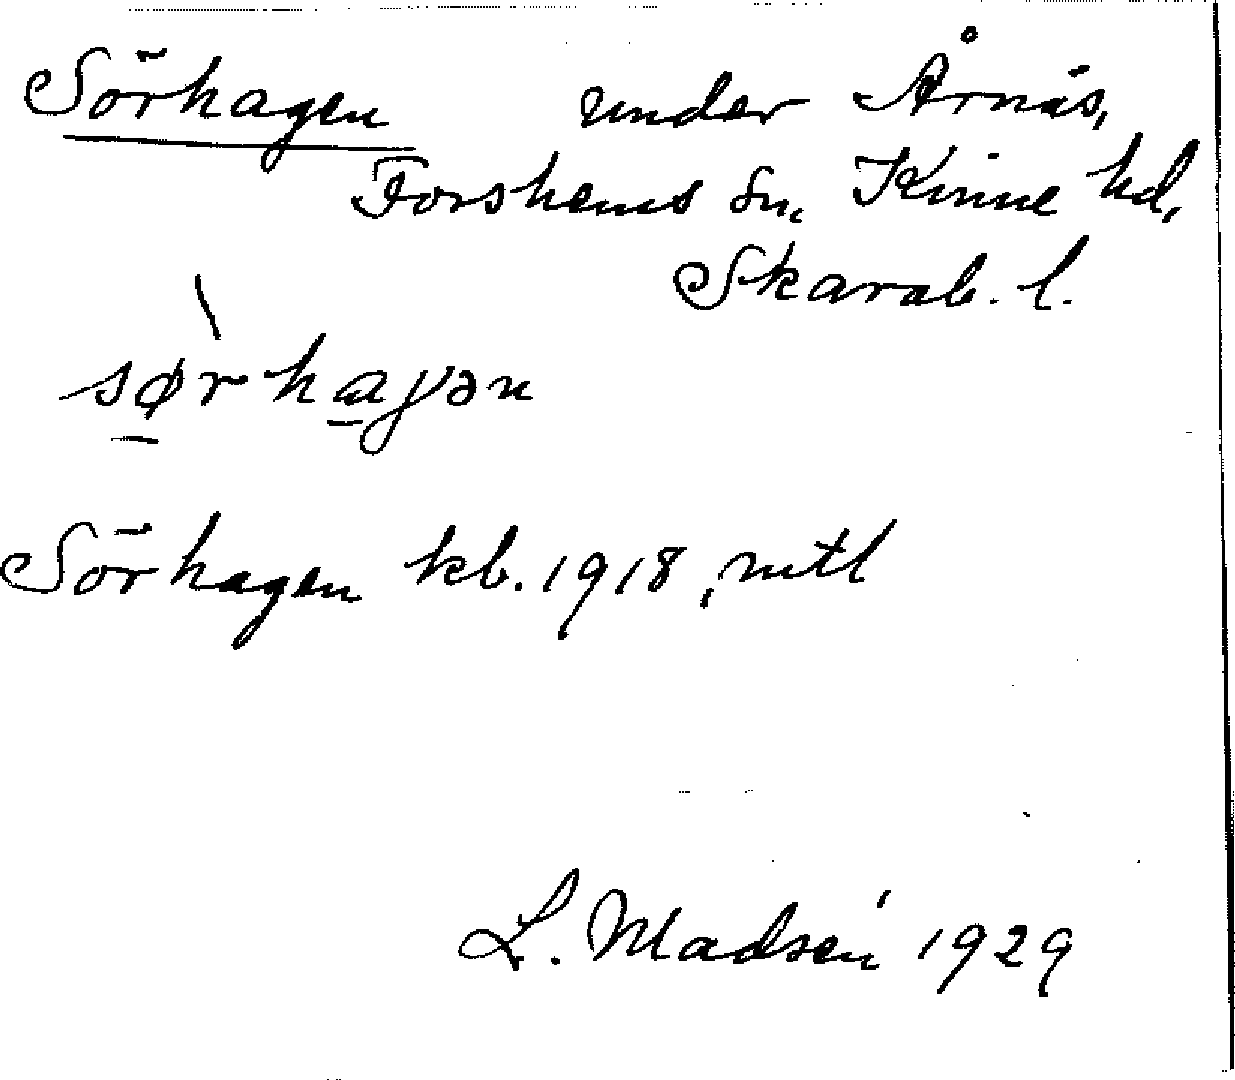 Sörhagen under Årnäs,
Forshems sn, Kinne hd,
Skarab. l.
sø̱rha̱gən
Sörhagen kb. 1918, mtl
L. Madsén 1929